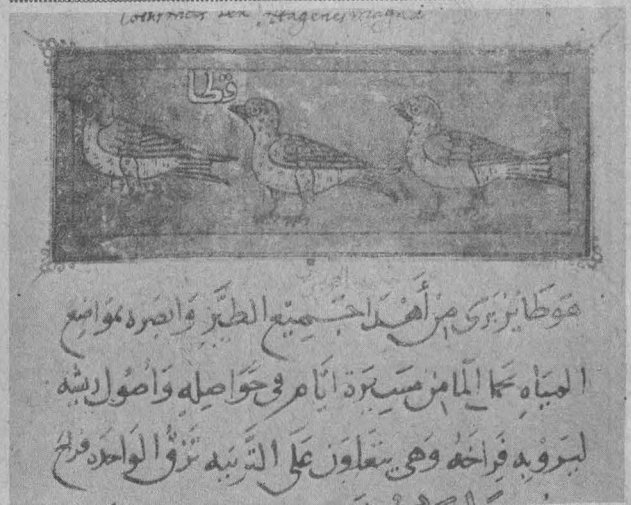 seu Attagenes
قطا
هو طاير بري من أهدا جميع الطير وابصره بمواضع
المياه يحمل الما من مسيرة ايام في حواصله وأصول ريشه
ليروبه فراخه وهي يتعاون على التربيه تزق الواحده فراخ